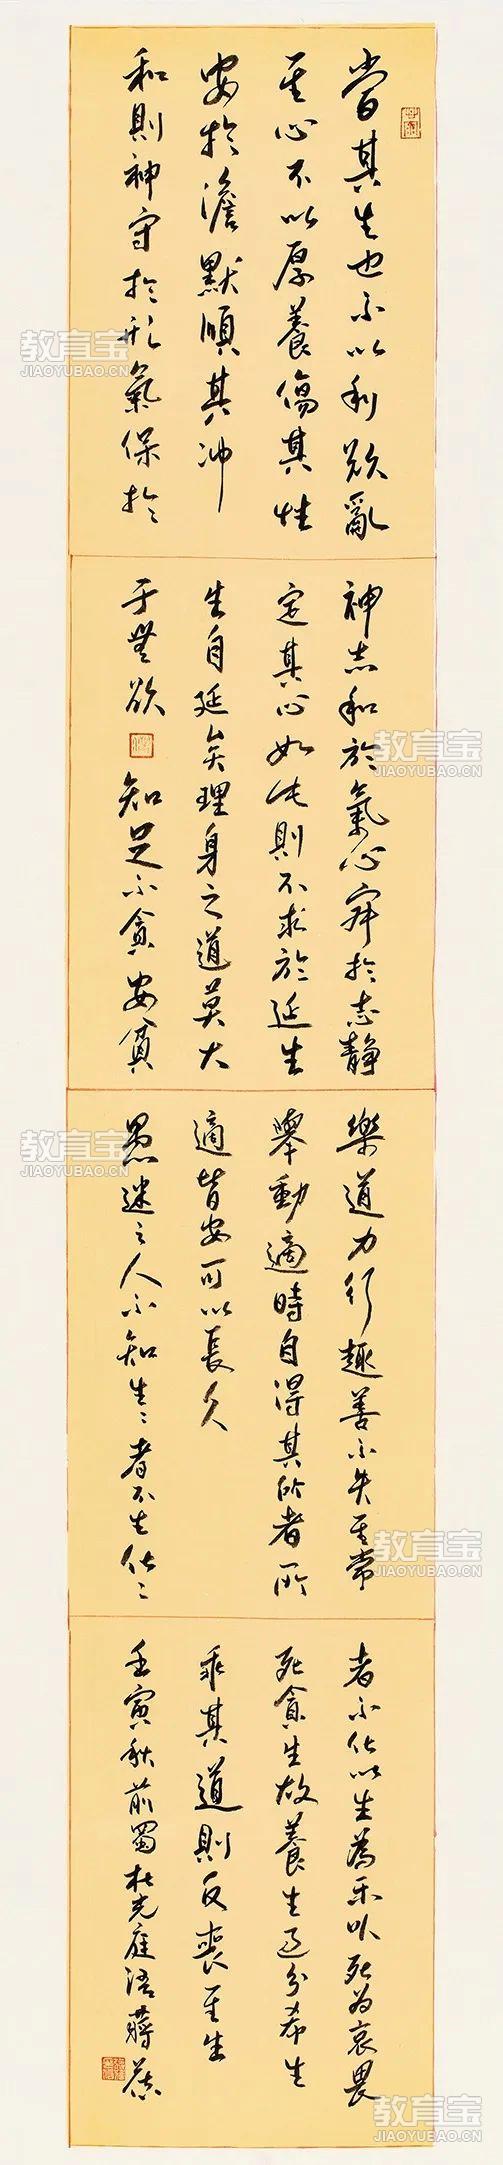 當其生也不以利欲亂
其心不以厚養傷其性
安於澹默順其冲
和則神守於形氣保於
神志和於氣心寂於志靜
定其心如此則不求於延生
生自延矣理身之道莫大
于無欲
知足不貪安貧
樂道力行趣善不失其常
舉動適時自得其所者所
適皆安可以長久
愚迷之人不知生〻者不生化〻
者不化以生為樂以死为哀畏
死貪生故養生過分希生
乖其道則反喪其生
壬寅秋前蜀杜光庭語蔣
教育宝
JIAOYUBAO.CN
教育宝
JIAOYUBAO.CN
教育宝
JIAOYUBAO.CN
教育宝
JIAOYUBAO.CN
教育宝
JIAOYUBAO.CN
教育宝
JIAOYUBAO.CN
教育宝
JIAOYUBAO.CN
教育宝
JIAOYUBAO.CN